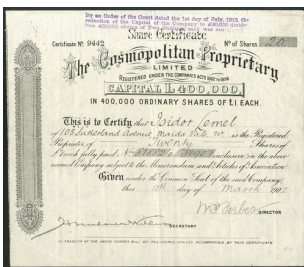 By an Order of the Court dated the 1st day of July, 1913, the
reduction of the Capital of the Company to £40,000 divided
into 400,000 shares of
Share Certificate
Certificate Nº 9442
Nº of Shares 20
The Cosmopolitan Proprietary
LIMITED
REGISTERED UNDER THE COMPANIES ACTS 1862 TO
CAPITAL £400,000,
IN 400,000 ORDINARY SHARES OF £1 EACH.
This is to Certify that Isidor Jemel
of 105 Sutherland Avenue, Maida Vale is the Registered
Proprietor of Twenty Shares of
£1 each fully paid Nº inclusive in the above
named Company subject to the Memorandum and Articles of Association
Given under the Common Seal of the said Company
this day of March
DIRECTOR
SECRETARY
NO TRANSFER OF THE ABOVE SHARES WILL BE REGISTERED UNLESS ACCOMPANIED BY THIS CERTIFICATE